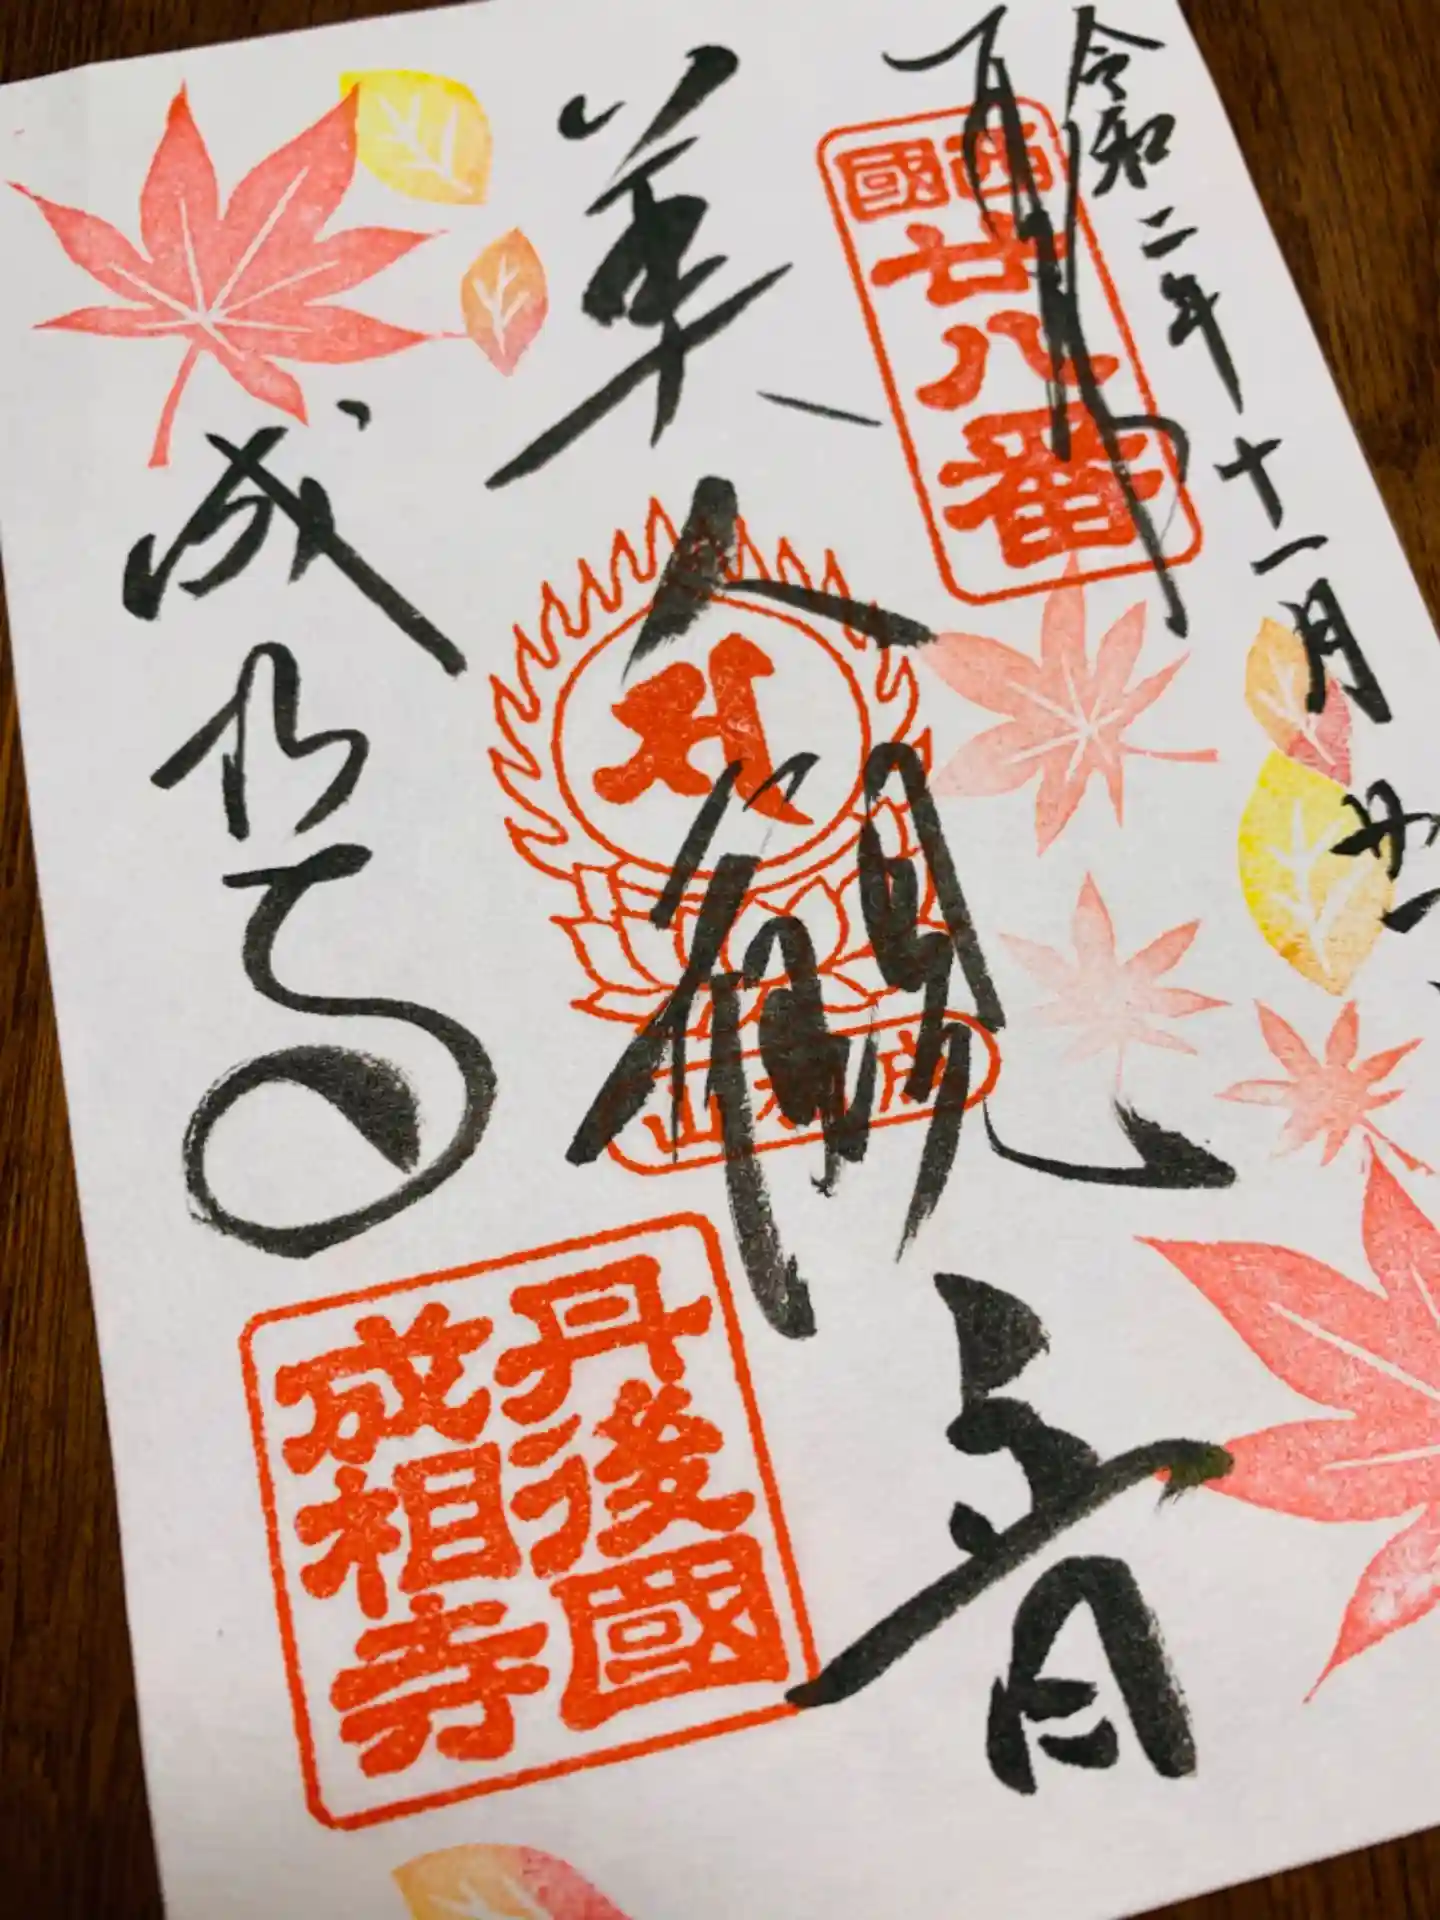 令和二年十一月廿一
西國
廿八番
美人観音
成相山
成相寺
丹後國
成相寺